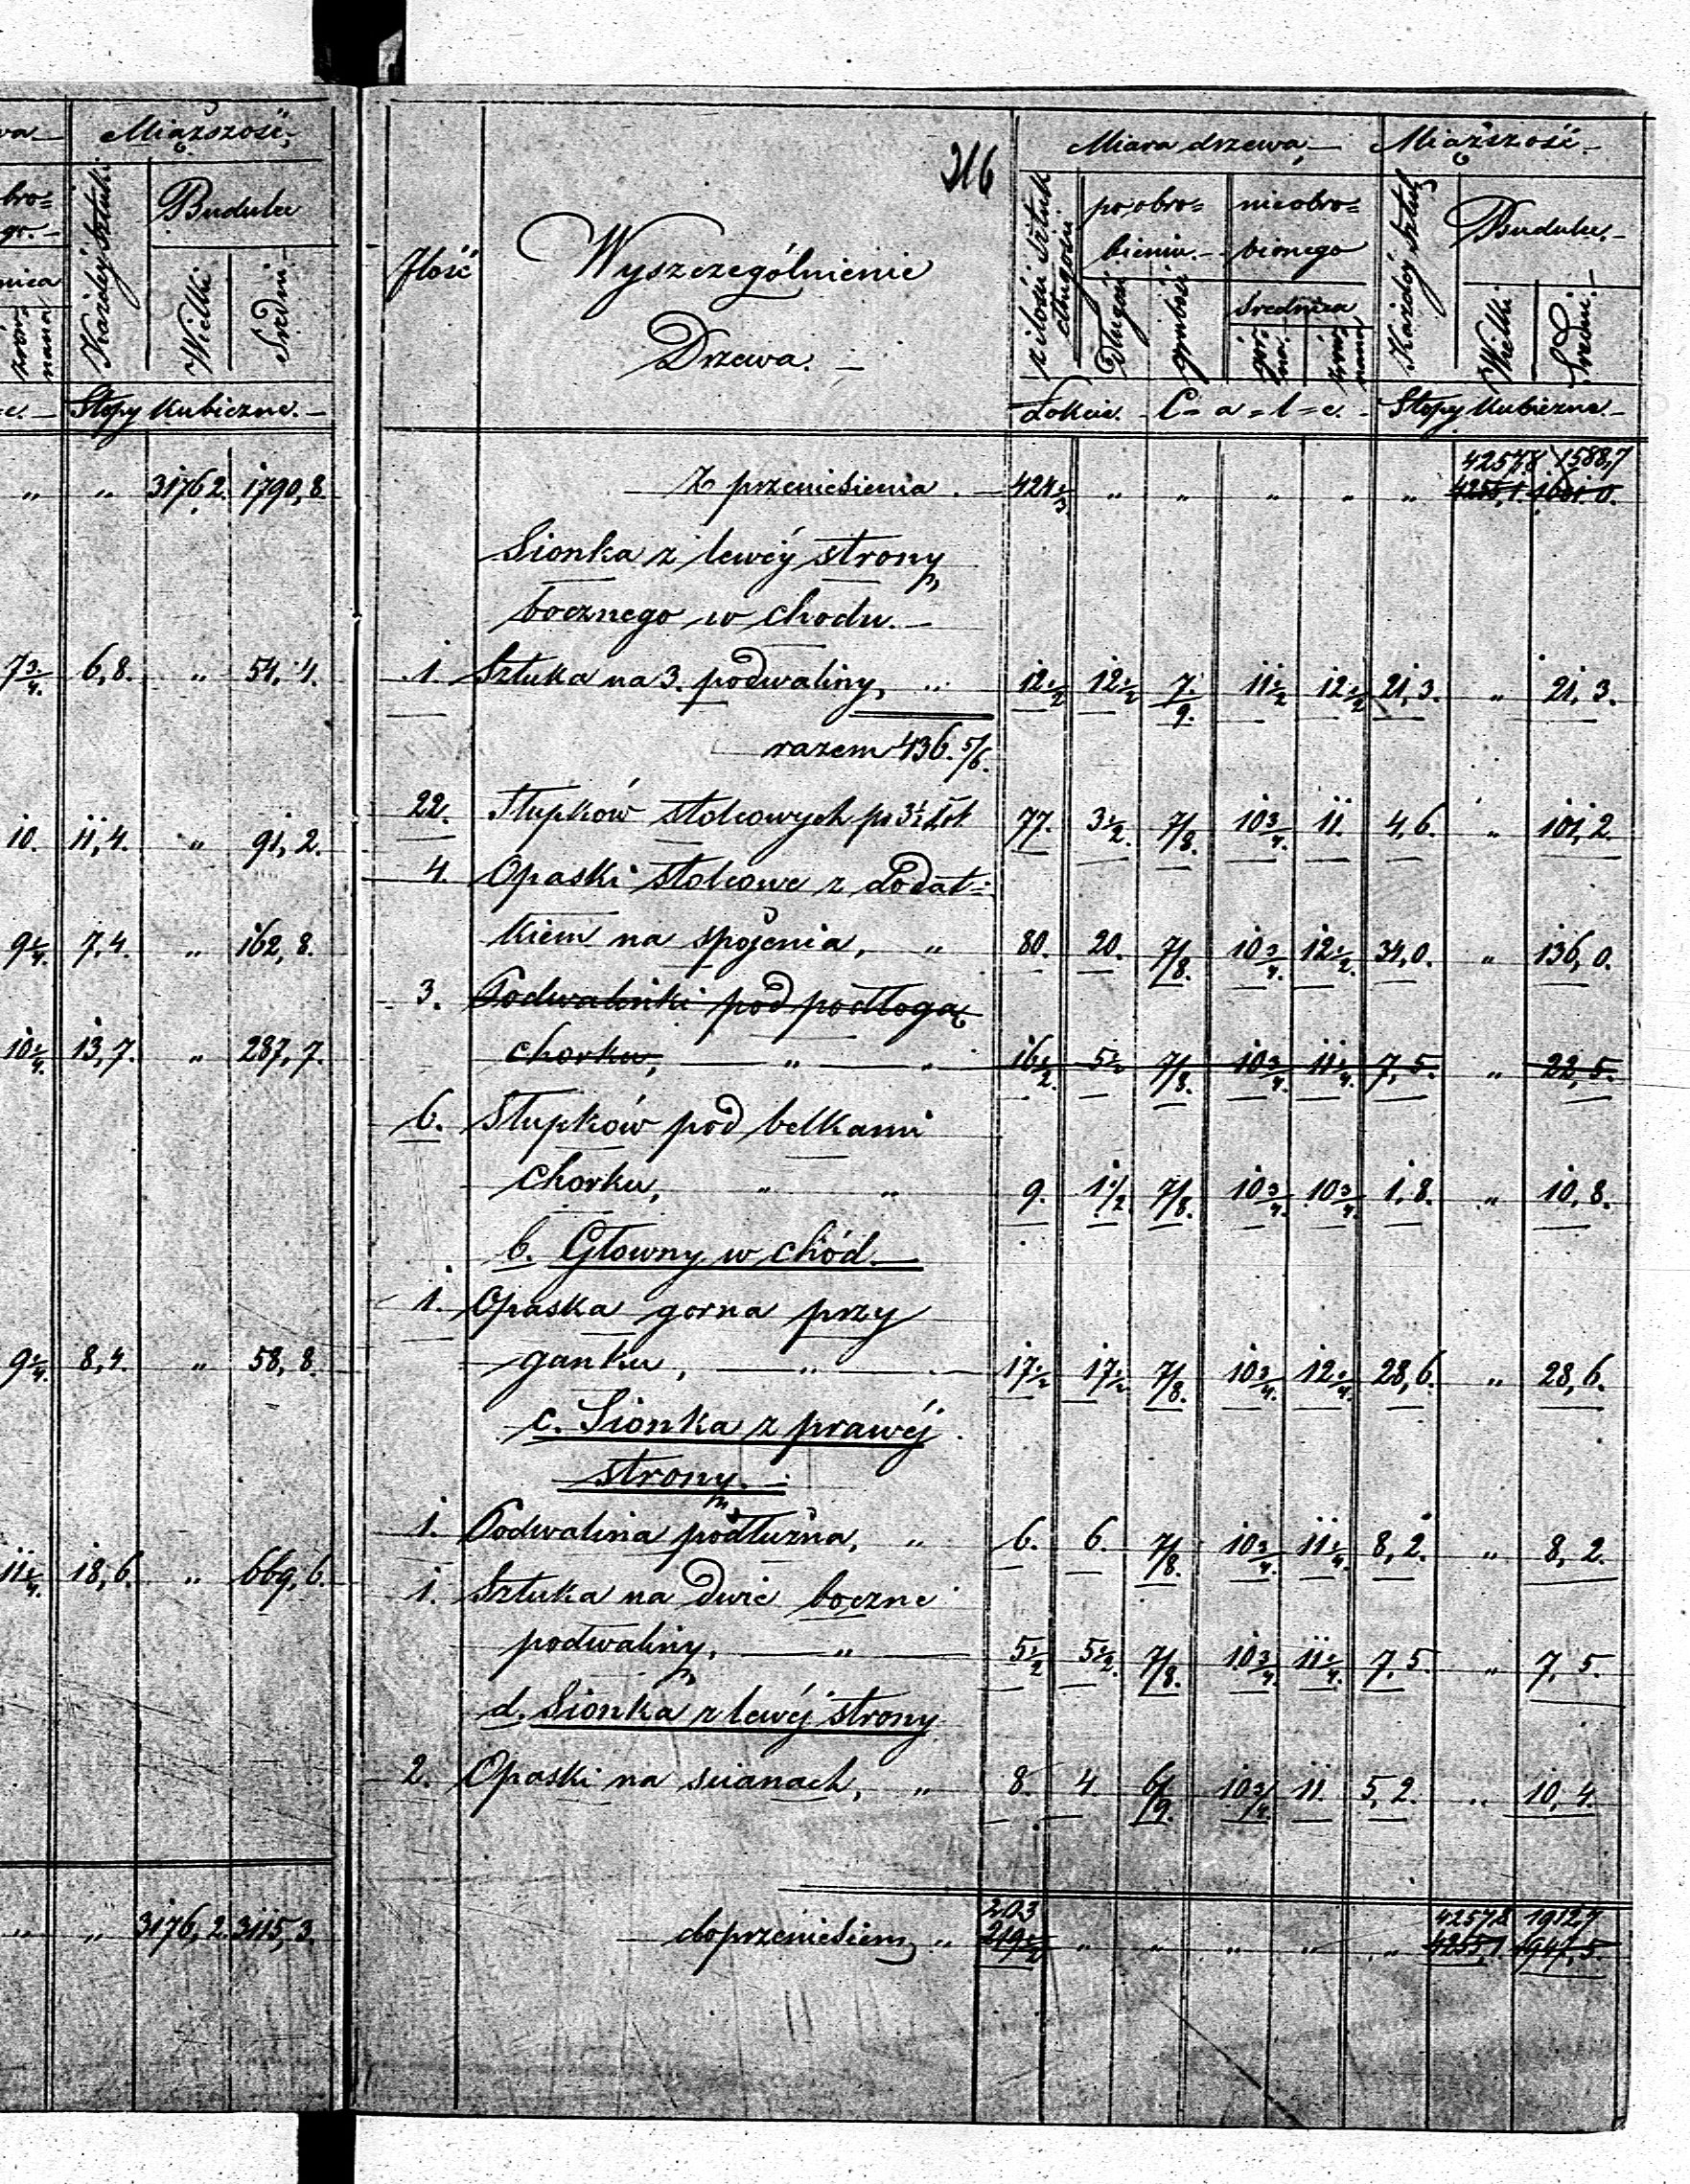 wa Miąższość
bro=
go.
Każdéj sztuki
Budulcu
nica
zrów=
nana
Wielki
Średni
Stopy Kubiczne.
" " 3176,2. 1790,8.
7 3/4. 6,8. " 54,4.
10. 11,4. " 91,2.
9 1/4. 7,4. " 162,8.
10 1/4. 13,7. " 287,7.
9 1/4. 8,4. " 58,8.
11 1/4. 18,6. " 669,6.
" " 3176,2. 3115,3.
216
Jlość
Wyszczególnienie
Drzewa.
Miara drzewa Miąższość
z ilości sztuk
długości
po obro=
bieniu.
nieobro=
bionego
Każdéj sztuki
Budulcu.
Długość
grubość
średnica
gór=
na.
zrów=
nana
Wielki
Średni.
Łokcie. C = a = l = e. Stopy Kubiczne
4257,8. 1588,7
Z przeniesienia. 424 1/3 " " " " " 4255,1.
Sionka z lewéj strony
bocznego w chodu.
1. Sztuka na 3. podwaliny, " 12 1/2 12 1/2 7/9. 11 1/2 12 1/2 21,3. " 21,3.
razem 436. 5/6.
22. Słupków stolcowych po 3 1/2 łok. 77. 3 1/2. 7/8. 10 3/4. 11. 4,6. " 101,2.
4. Opaski stolcowe z dodat=
kiem na spojenia, " 80. 20. 7/8. 10 3/4. 12 1/2. 34,0. " 136,0.
3. Podwalinki pod podłogą
chorku, " " 16 1/2. 5 1/2 7/8. 10 3/4. 11 1/4. 7,5. " 22,5.
6. Słupków pod belkami
chorku, " " 9. 1 1/2. 7/8. 10 3/4. 10 3/4. 1,8. " 10,8.
b. Głowny w chód
1. Opaska gorna przy
ganku, " 17 1/2 17 1/2 7/8. 10 3/4. 12 1/4. 28,6. " 28,6.
c. Sionka z prawéj
strony.
1. Podwalina podłużna, " 6. 6. 7/8. 10 3/4. 11 1/4. 8,2. " 8,2.
1. Sztuka na dwie boczne
podwaliny, " 5 1/2 5 1/2. 7/8. 10 3/4. 11 1/4. 7,5. " 7,5.
d. Sionka z lewéj strony
2. Opaski na scianach, " 8. 4. 6/9. 10 3/4. 11. 5,2. " 10,4.
203 4257,8 1912,7
do przeniesienia " 219 1/2 " " " " " 4255,1 1947,5